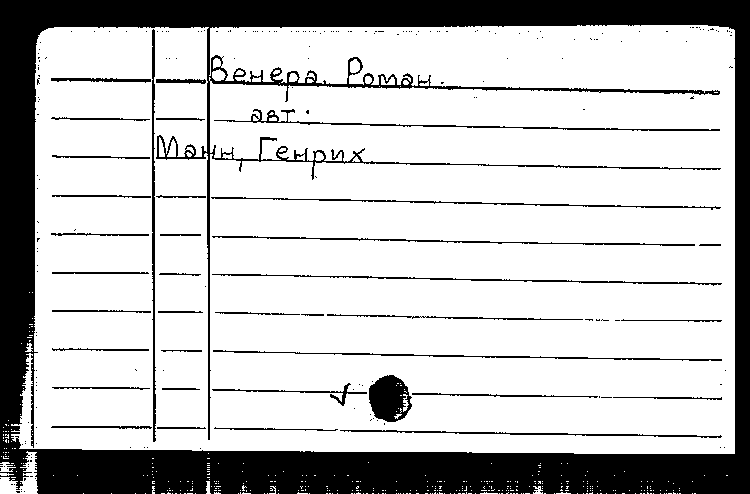 Венера. Роман.
авт:
Манн, Генрих